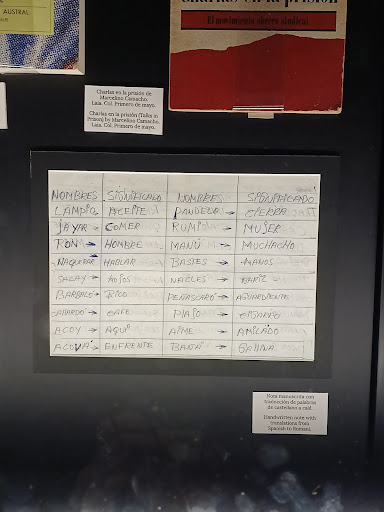 AUSTRAL
Charlas en la prisión
El movimiento obrero sindical
Charlas en la prisión de
Marcelino Camacho.
Laia. Col. Primero de mayo.
Charlas en la prisión (Talks in
Prison) by Marcelino Camacho.
Laia. Col. Primero de mayo.
NOMBRES SIGNIFICADO NOMBRES SIGNIFICADO
LAMPIO ACEITE PANDELA → CIERRA
JAYAR → COMER RUMI → MUJER
RON → HOMBRE MANÚ → MUCHACHO
NAQUERAR HABLAR BASTES → MANOS
SACAY → NACLES → NARIZ
BARBALÓ → RICO PEÑASCARÓ → AGUARDIENTE
→ CAFE PLAJO → CIGARRO
ACOY → AQUI AIME → AMILADO
ACOYÁ → ENFRENTE BANÁ → GALLINA
Nota manuscrita con
traducción de palabras
de castellano a caló.
Handwritten note with
translations from
Spanish to Romani.